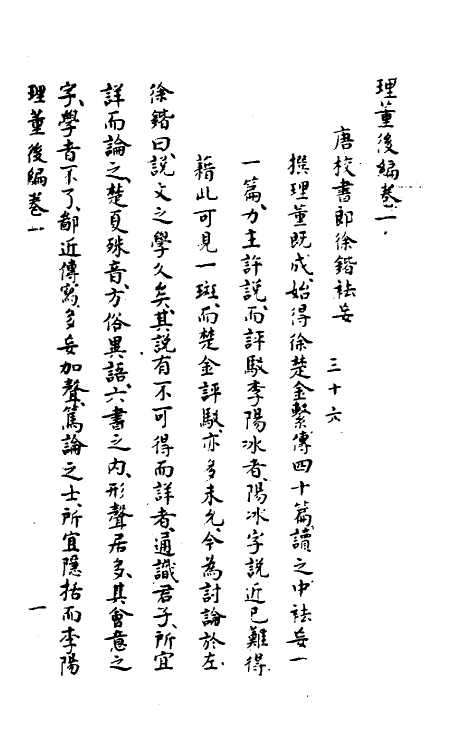 理董後編卷一
唐校書郎徐鍇袪妄　三十六
撰理董既成、始得徐楚金繫傳四十篇、讀之中袪妄一
一篇、力主許說、而評駁李陽冰者、陽冰字說近已難得、
藉此可見一斑、而楚金評駁、亦多未允、今為討論於左、
徐鍇曰、說文之學久矣、其說有不可得而詳者、通識君子、所宜
詳而論之、楚夏殊音、方俗異語、六書之內、形聲居多、其會意之
字、學者不了、鄙近傳寫、多妄加聲、篤論之士、所宜隱括、而李陽
理董後編卷一　一